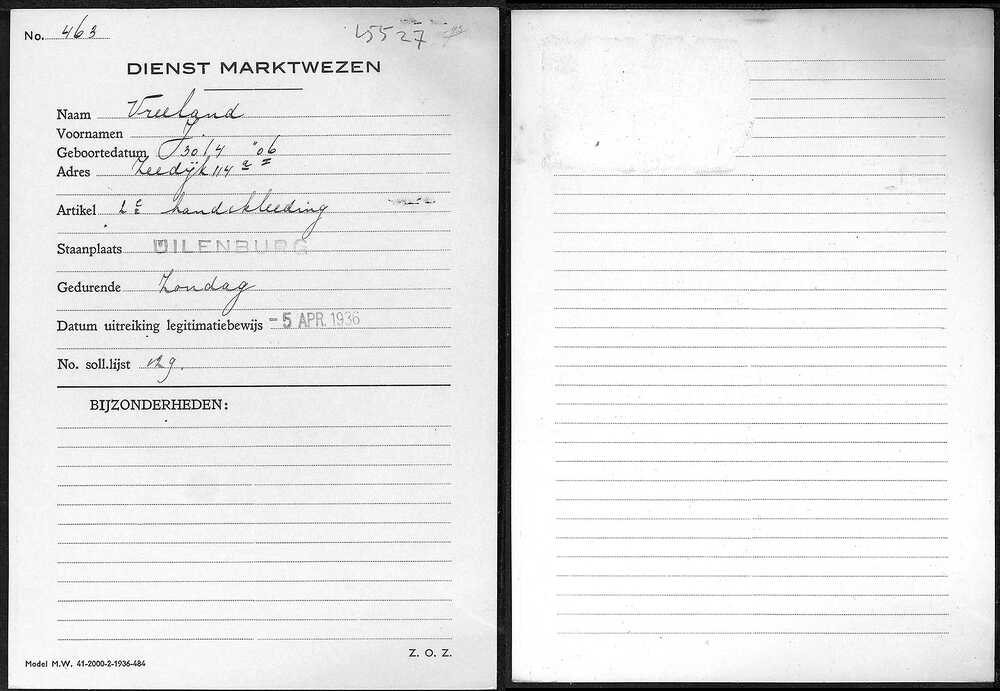 No. 463
45527
DIENST MARKTWEZEN
Naam Vreeland
Voornamen J.
Geboortedatum 30/4 '06
Adres Zeedijk 114 a
Artikel 2e handskleeding
Staanplaats UILENBURG
Gedurende Zondag
Datum uitreiking legitimatiebewijs - 5 APR. 1936
No. soll.lijst 129.
BIJZONDERHEDEN:
Z. O. Z.
Model M.W. 41-2000-2-1936-484